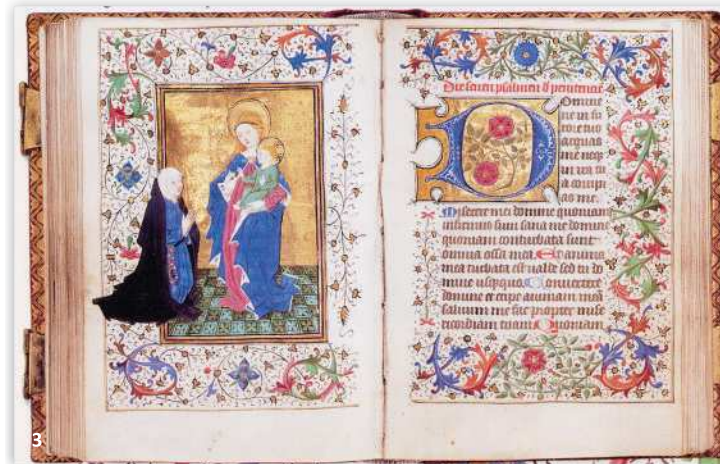 D omine
ne in fu
rore tuo
arguas
me neq
in ira tu
a corripi
as me.
Miserere mei domine quoniam
infirmus sum sana me domine
quoniam conturbata sunt
omnia ossa mea. Et anima
mea turbata est valde sed tu do
mine usquequo. Convertere
domine et eripe animam meā
salvum me fac propter mise
ricordiam tuam. Quoniam
3